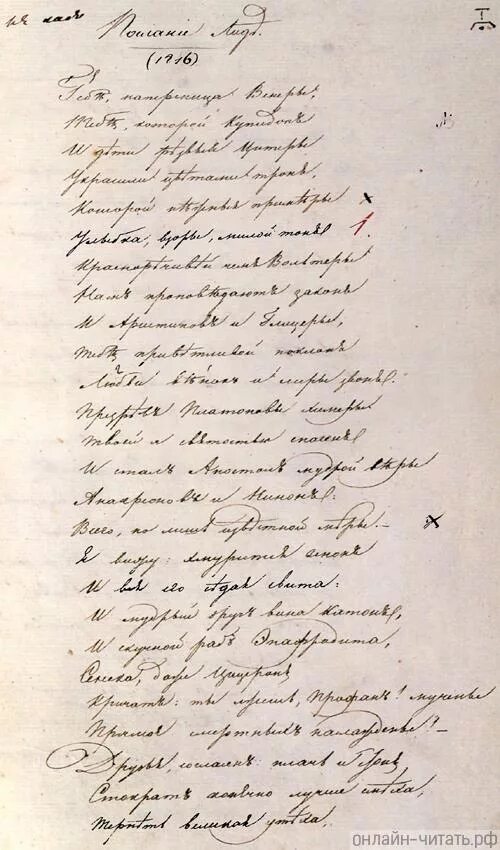 Посланіе Лидѣ.
(1816)
Тебѣ, наперсница Венеры,
Тебѣ, которой Купидонъ
И дѣти рѣзвыя Цитеры
Украсили цвѣтами тронъ,
Которой нѣжные примѣры
Улыбка, взоры, милой тонъ
1.
Краснорѣчивѣй чемъ Вольтеры
Намъ проповѣдаютъ законъ
И Аристиповъ и Глицеры,
Тебѣ привѣтливой поклонъ
Любви вѣнокъ и лиры звонъ.
Презрѣвъ Платоновы химеры
Твоей я святостью спасенъ
И сталъ Апостолъ мудрой вѣры
Анакреоновъ и Нинонъ:
Всего, но лишь извѣстной мѣры. —
Я вижу: хмурится Зенонъ
И вся его сѣдая свита:
И мудрый другъ вина Катонъ,
И скучной рабъ Эпафродита,
Сенека, даже Цицеронъ
Кричатъ: ты лжешь, Профанъ! мученье
Прямое смертныхъ наслажденье! —
Друзья, согласенъ: плачъ и стонъ
Стократъ конечно лучше смѣха,
Терпѣть великая утѣха.
онлайн-читать.рф